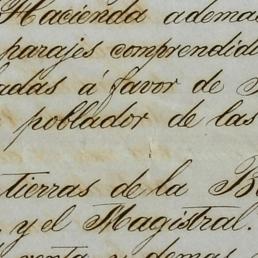 Hacienda ademas
parajes comprendid
adas á favor de
poblador de las
tierras de la B
y el Magistral.
venta y demas